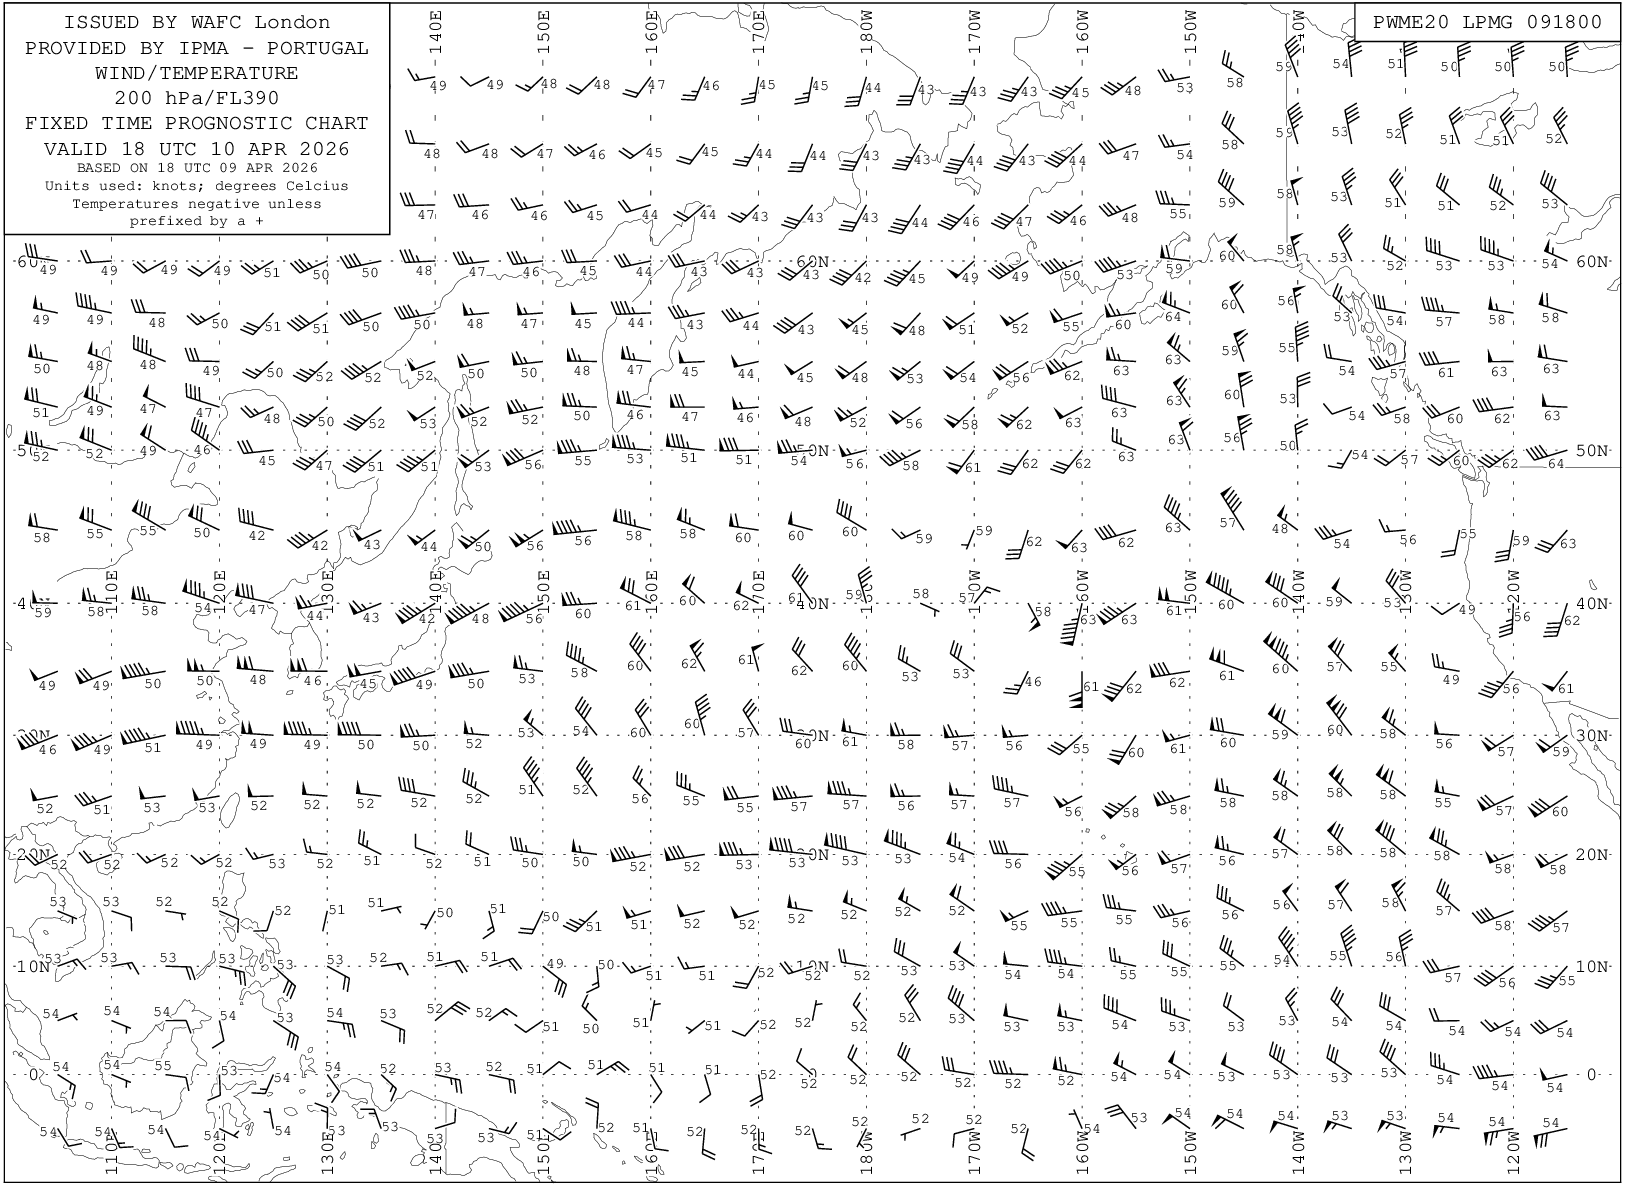 ISSUED BY WAFC London
PROVIDED BY IPMA - PORTUGAL
WIND/TEMPERATURE
200 hPa/FL390
FIXED TIME PROGNOSTIC CHART
VALID 18 UTC 10 APR 2026
BASED ON 18 UTC 09 APR 2026
Units used: knots; degrees Celcius
Temperatures negative unless
prefixed by a +
PWME20 LPMG 091800
140E 150E 160E 170E 180W 170W 160W 150W 140W
49 49 48 48 47 46 45 45 44 43 43 43 45 48 53 58 59 54 51 50 50 50
48 48 47 46 45 45 44 44 43 43 44 43 44 47 54 58 59 53 52 51 51 52
47 46 46 45 44 44 43 43 43 44 46 47 46 48 55 59 58 53 51 51 52 53
60N 49 49 49 49 51 50 50 48 47 46 45 44 43 43 60N 43 42 45 49 49 50 53 59 60 58 53 52 53 53 54 60N
49 49 48 50 51 51 50 50 48 47 45 44 43 44 43 45 48 51 52 55 60 64 60 56 53 54 57 58 58
50 48 48 49 50 52 52 52 50 50 48 47 45 44 45 48 53 54 56 62 63 63 59 55 54 57 61 63 63
51 49 47 47 48 50 52 53 52 52 50 46 47 46 48 52 56 58 62 63 63 63 60 53 54 58 60 62 63
52 52 49 46 45 47 51 51 53 56 55 53 51 51 54 50N 56 58 61 62 62 63 63 56 50 54 57 60 62 64 50N
58 55 55 50 42 42 43 44 50 56 56 58 58 60 60 60 59 59 62 63 62 63 57 48 54 56 55 59 63
110E 120E 130E 140E 150E 160E 170E 180W 170W 160W 150W 140W 130W 120W
59 58 58 54 47 44 43 42 48 56 60 61 60 62 61 40N 59 58 57 58 63 63 61 60 60 59 53 49 56 62 40N
49 49 50 50 48 46 45 49 50 53 58 60 62 61 62 60 53 53 46 61 62 62 61 60 57 55 49 56 61
46 49 51 49 49 49 50 50 52 53 54 60 60 57 60 30N 61 58 57 56 55 60 61 60 59 60 58 56 57 59 30N
52 51 53 53 52 52 52 52 52 51 52 56 55 55 57 57 56 57 57 56 58 58 58 58 58 58 55 57 60
20N 52 52 52 52 53 52 51 52 51 50 50 52 52 53 53 20N 53 53 54 56 55 56 57 56 57 58 58 58 58 58 20N
53 53 52 52 52 51 51 50 51 50 51 51 52 52 52 52 52 52 55 55 55 56 56 56 57 58 57 58 57
10N 53 53 53 53 53 53 52 51 51 49 50 51 51 52 52 10N 52 53 53 54 54 55 55 55 54 55 56 57 56 55 10N
54 54 54 54 53 53 53 52 52 51 50 51 51 52 52 52 52 53 53 53 54 54 53 53 54 54 54 54 54
0 54 54 55 53 54 54 52 53 52 51 51 51 51 52 52 52 52 52 52 52 54 54 53 53 53 53 54 54 54 0
54 54 54 54 54 53 53 53 53 51 52 51 52 52 52 52 52 52 52 54 53 54 54 54 53 53 54 54 54
110E 120E 130E 140E 150E 160E 170E 180W 170W 160W 150W 140W 130W 120W